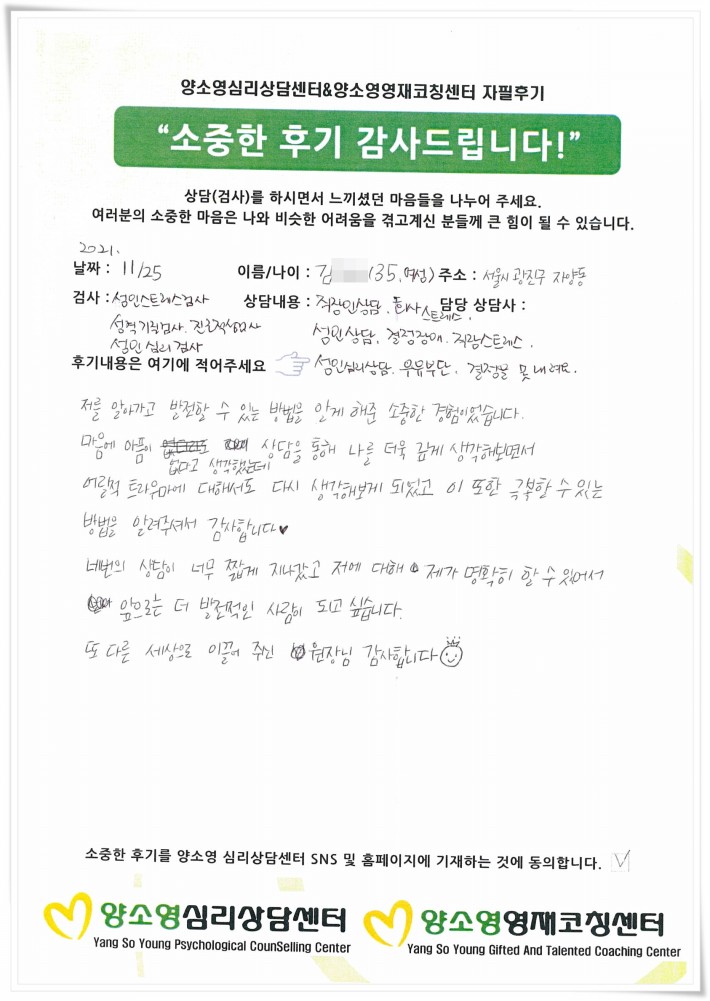 양소영심리상담센터&양소영영재코칭센터 자필후기
“소중한 후기 감사드립니다!”
상담(검사)를 하시면서 느끼셨던 마음들을 나누어 주세요.
여러분의 소중한 마음은 나와 비슷한 어려움을 겪고계신 분들께 큰 힘이 될 수 있습니다.
2021.
날짜 : 11/25 이름/나이 : 김 (35, 여성) 주소 : 서울시 광진구 자양동
검사 : 성인스트레스검사 상담내용 : 직장인상담, 회사스트레스, 담당 상담사 :
성격기질검사, 진로적성검사 성인상담, 결정장애, 직장스트레스,
성인심리검사
후기내용은 여기에 적어주세요 성인심리상담, 우유부단, 결정을 못내려요.
저를 알아가고 발전할 수 있는 방법을 알게 해준 소중한 경험이었습니다.
마음에 아픔이 없다고 생각했는데 상담을 통해 나를 더욱 깊게 생각해보면서
어릴적 트라우마에 대해서도 다시 생각해보게 되었고 이 또한 극복할 수 있는
방법을 알려주셔서 감사합니다♥
네번의 상담이 너무 짧게 지나갔고 저에 대해 제가 명확히 할 수 있어서
앞으로는 더 발전적인 사람이 되고 싶습니다.
또 다른 세상으로 이끌어 주신 원장님 감사합니다
소중한 후기를 양소영 심리상담센터 SNS 및 홈페이지에 기재하는 것에 동의합니다. ☑
양소영심리상담센터 양소영영재코칭센터
Yang So Young Psychological CounSelling Center Yang So Young Gifted And Talented Coaching Center